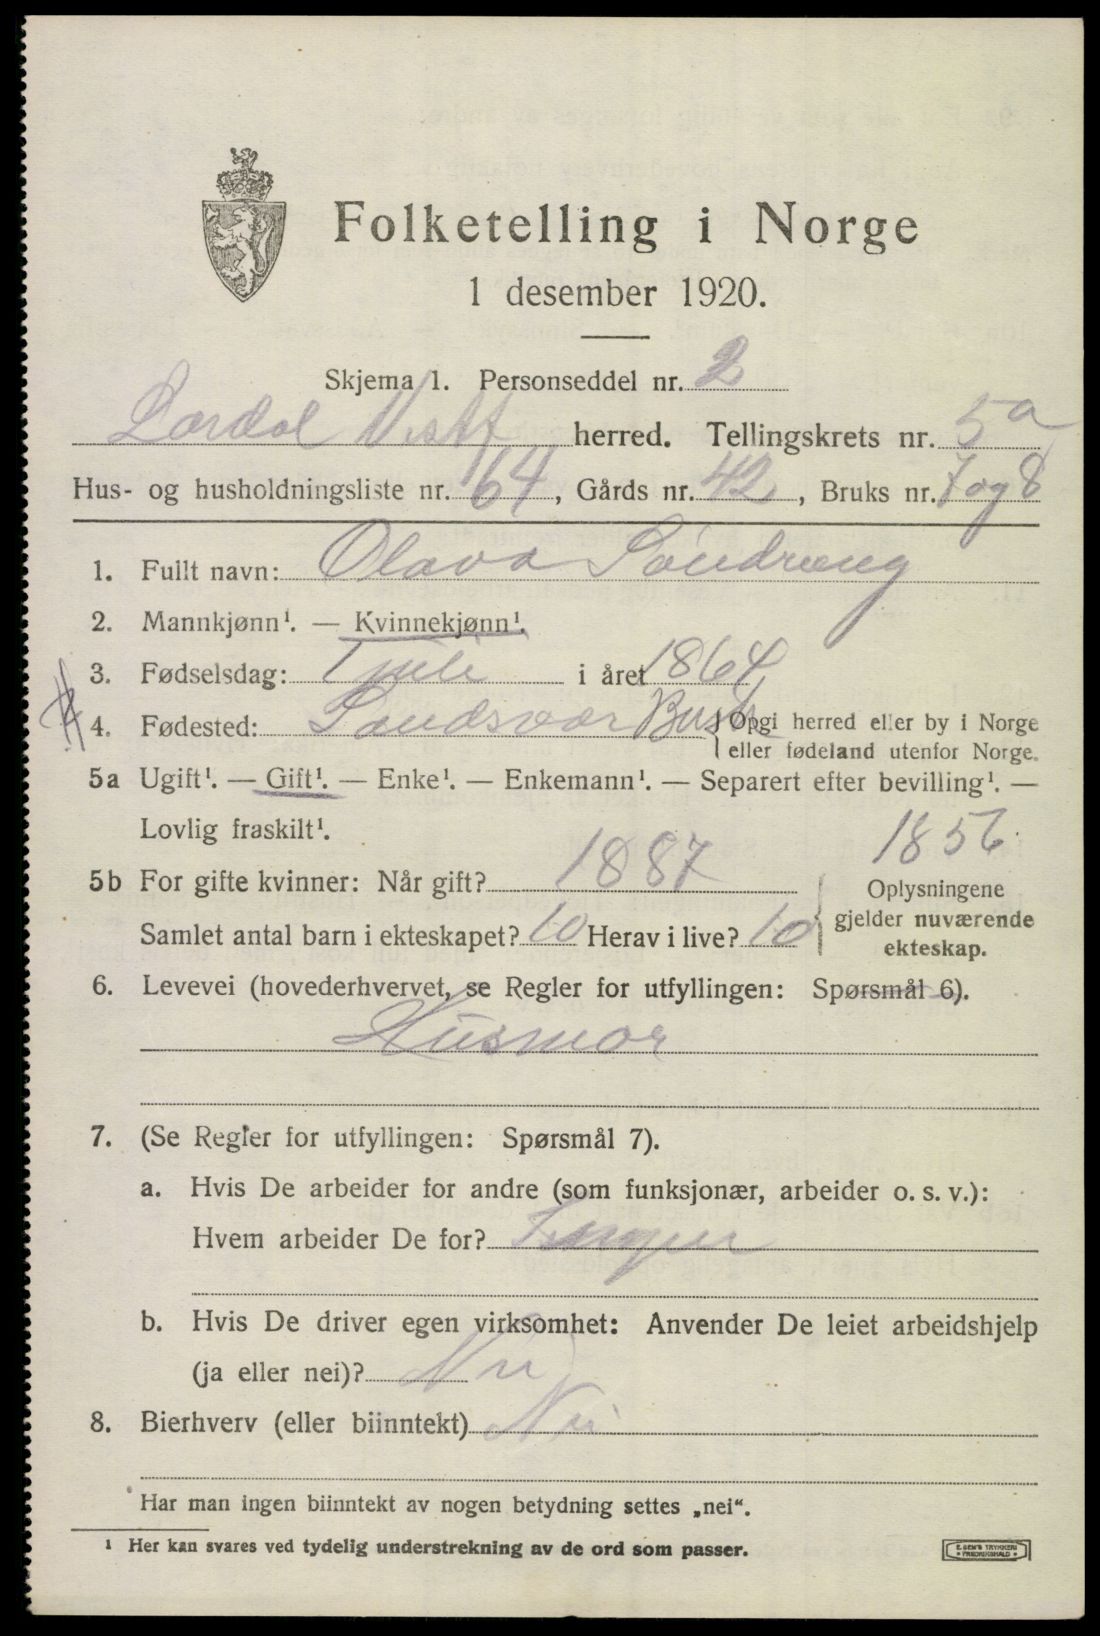 Folketelling i Norge
1 desember 1920.
Skjema 1. Personseddel nr. 2
Lardal Vestf herred. Tellingskrets nr. 5a
Hus- og husholdningsliste nr. 64, Gårds nr. 42, Bruks nr. 7 og 8
1. Fullt navn: Olava Søndreng
2. Mannkjønn¹. — Kvinnekjønn¹.
3. Fødselsdag: i året 1864
4. Fødested: Sandsvær Busk } Opgi herred eller by i Norge
eller fødeland utenfor Norge.
5a Ugift¹. — Gift¹. — Enke¹. — Enkemann¹. — Separert efter bevilling¹. —
Lovlig fraskilt¹.
1856
5b For gifte kvinner: Når gift? 1887
Samlet antal barn i ekteskapet? 10 Herav i live? 10
Oplysningene
gjelder nuværende
ekteskap.
6. Levevei (hovederhvervet, se Regler for utfyllingen: Spørsmål 6).
Husmor
7. (Se Regler for utfyllingen: Spørsmål 7).
a. Hvis De arbeider for andre (som funksjonær, arbeider o. s. v.):
Hvem arbeider De for? Ingen
b. Hvis De driver egen virksomhet: Anvender De leiet arbeidshjelp
(ja eller nei)? Nei
8. Bierhverv (eller biinntekt) Nei
Har man ingen biinntekt av nogen betydning settes „nei“.
¹ Her kan svares ved tydelig understrekning av de ord som passer.
E. SEM'S TRYKKERI
FREDRIKSHALD